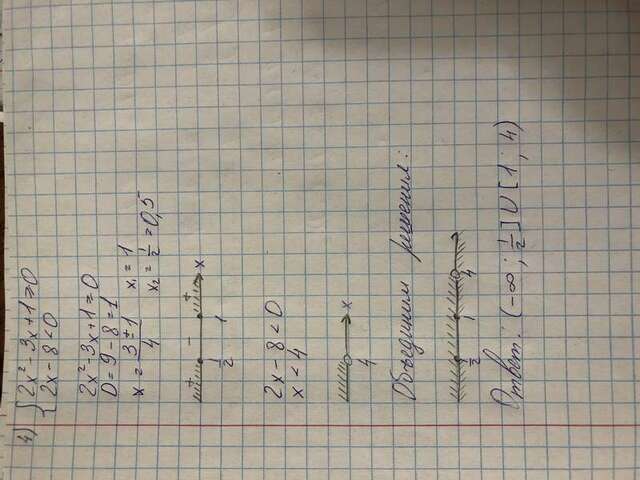 4) { 2x² - 3x + 1 ≥ 0
2x - 8 < 0
2x² - 3x + 1 = 0
D = 9 - 8 = 1
x = (3 ± 1)/4   x₁ = 1
x₂ = 1/2 = 0,5
+ - + x
1/2 1
2x - 8 < 0
x < 4
x
4
Объединим решения:
1/2 1 4
Ответ: (-∞ ; 1/2] U [1 ; 4)